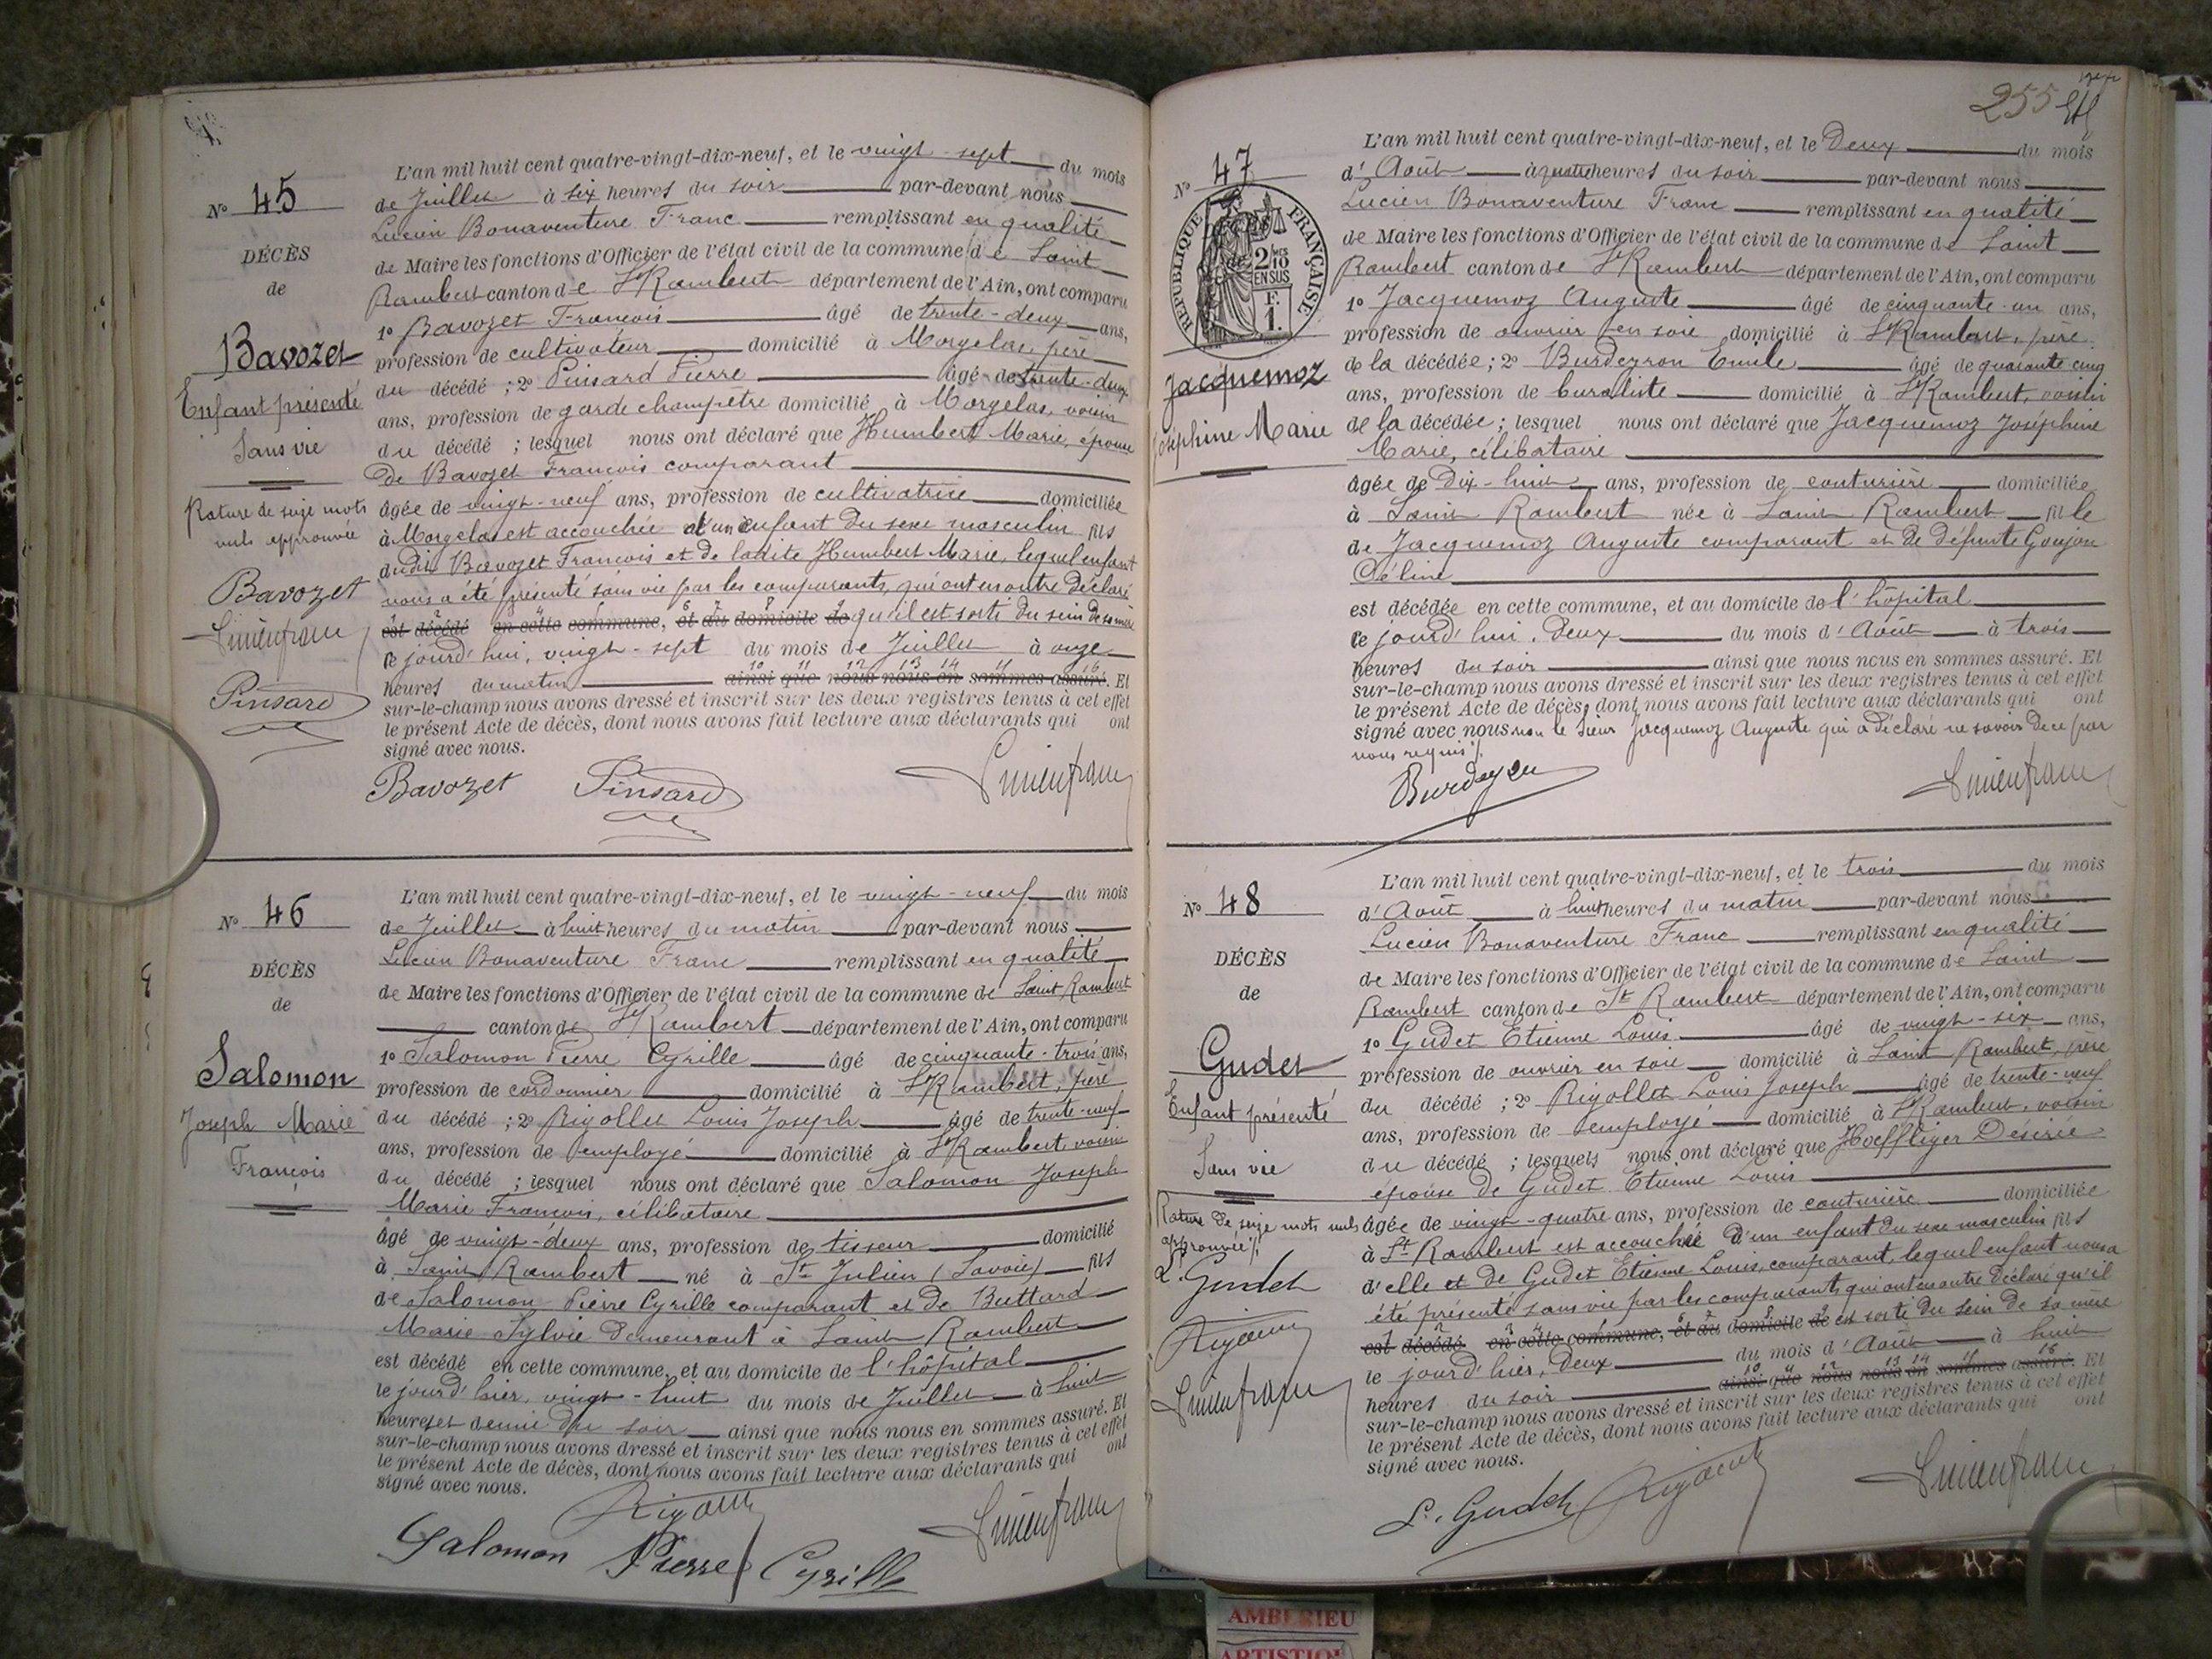 N° 45
DÉCÈS
de
Bavozet
Enfant présenté
Sans vie
Rature de seize mots
nuls approuvée
Bavozet
Lucien franc
Pinsard
L'an mil huit cent quatre-vingt-dix-neuf, et le vingt-sept du mois
de Juillet à six heures du soir par-devant nous
Lucien Bonaventure Franc remplissant en qualité
de Maire les fonctions d'Officier de l'état civil de la commune de Saint
Rambert canton de St Rambert département de l'Ain, ont comparu
1° Bavozet François âgé de trente-deux ans,
profession de cultivateur domicilié à Morgelas, père
du décédé ; 2° Pinsard Pierre âgé de trente-deux
ans, profession de garde champêtre domicilié à Morgelas, voisin
du décédé ; lesquel nous ont déclaré que Humbert Marie, épouse
de Bavozet François comparant
âgée de vingt-neuf ans, profession de cultivatrice domiciliée
à Morgelas est accouchée d'un enfant du sexe masculin fils
dudit Bavozet François et de ladite Humbert Marie, lequel enfant
nous a été présenté sans vie par les comparants, qui ont en outre déclaré
est décédé en cette commune, et au domicile de qu'il est sorti du sein de sa mère
ce jourd'hui, vingt-sept du mois de Juillet à onze
heures du matin ainsi que nous nous en sommes assuré. Et
sur-le-champ nous avons dressé et inscrit sur les deux registres tenus à cet effet
le présent Acte de décès, dont nous avons fait lecture aux déclarants qui ont
signé avec nous.
Bavozet Pinsard Lucien franc
N° 46
DÉCÈS
de
Salomon
Joseph Marie
François
L'an mil huit cent quatre-vingt-dix-neuf, et le vingt-neuf du mois
de Juillet à huit heures du matin par-devant nous
Lucien Bonaventure Franc remplissant en qualité
de Maire les fonctions d'Officier de l'état civil de la commune de Saint Rambert
canton de St Rambert département de l'Ain, ont comparu
1° Salomon Pierre Cyrille âgé de cinquante-trois ans,
profession de cordonnier domicilié à St Rambert, père
du décédé ; 2° Rigollet Louis Joseph âgé de trente-neuf
ans, profession de employé domicilié à St Rambert voisin
du décédé ; lesquel nous ont déclaré que Salomon Joseph
Marie François, célibataire
âgé de vingt-deux ans, profession de tisseur domicilié
à Saint Rambert né à St Julien (Savoie) fils
de Salomon Pierre Cyrille comparant et de Buttard
Marie Sylvie demeurant à Saint Rambert
est décédé en cette commune, et au domicile de l'hôpital
le jourd'hier, vingt-huit du mois de Juillet à huit
heures et demie du soir ainsi que nous nous en sommes assuré. Et
sur-le-champ nous avons dressé et inscrit sur les deux registres tenus à cet effet
le présent Acte de décès, dont nous avons fait lecture aux déclarants qui ont
signé avec nous.
Salomon Pierre Cyrille Lucien franc
255
N° 47
RÉPUBLIQUE FRANÇAISE
2/10 EN SUS
F. 1.
Jacquemoz
Joséphine Marie
L'an mil huit cent quatre-vingt-dix-neuf, et le Deux du mois
d'Août à quatre heures du soir par-devant nous
Lucien Bonaventure Franc remplissant en qualité
de Maire les fonctions d'Officier de l'état civil de la commune de Saint
Rambert canton de St Rambert département de l'Ain, ont comparu
1° Jacquemoz Auguste âgé de cinquante-un ans,
profession de ouvrier en soie domicilié à St Rambert, père
de la décédée ; 2° Burdeyron Emile âgé de quarante cinq
ans, profession de buraliste domicilié à St Rambert, voisin
de la décédée ; lesquel nous ont déclaré que Jacquemoz Joséphine
Marie, célibataire
âgée de Dix-huit ans, profession de couturière domiciliée
à Saint Rambert née à Saint Rambert fille
de Jacquemoz Auguste comparant et de défunte Goujon
Céline
est décédée en cette commune, et au domicile de l'hôpital
ce jourd'hui, Deux du mois d'Août à trois
heures du soir ainsi que nous nous en sommes assuré. Et
sur-le-champ nous avons dressé et inscrit sur les deux registres tenus à cet effet
le présent Acte de décès, dont nous avons fait lecture aux déclarants qui ont
signé avec nous non le Sieur Jacquemoz Auguste qui a déclaré ne savoir de ce par
nous requis
Lucien franc
N° 48
DÉCÈS
de
Gudet
Enfant présenté
Sans vie
Rature de seize mots nuls
approuvée
L. Gudet
Lucien franc
L'an mil huit cent quatre-vingt-dix-neuf, et le trois du mois
d'Août à huit heures du matin par-devant nous
Lucien Bonaventure Franc remplissant en qualité
de Maire les fonctions d'Officier de l'état civil de la commune de Saint
Rambert canton de St Rambert département de l'Ain, ont comparu
1° Gudet Etienne Louis âgé de vingt-six ans,
profession de ouvrier en soie domicilié à Saint Rambert, père
du décédé ; 2° Rigollet Louis Joseph âgé de trente-neuf
ans, profession de employé domicilié à St Rambert, voisin
du décédé ; lesquels nous ont déclaré que Hoeffliger Désirée
épouse de Gudet Etienne Louis
âgée de vingt-quatre ans, profession de couturière domiciliée
à St Rambert est accouchée d'un enfant du sexe masculin fils
d'elle et de Gudet Etienne Louis, comparant, lequel enfant nous a
été présenté sans vie par les comparants qui ont en outre déclaré qu'il
est décédé en cette commune, et au domicile de est sorti du sein de sa mère
le jourd'hier, Deux du mois d'Août à huit
heures du soir ainsi que nous nous en sommes assuré. Et
sur-le-champ nous avons dressé et inscrit sur les deux registres tenus à cet effet
le présent Acte de décès, dont nous avons fait lecture aux déclarants qui ont
signé avec nous.
L. Gudet Lucien franc
AMBERIEU